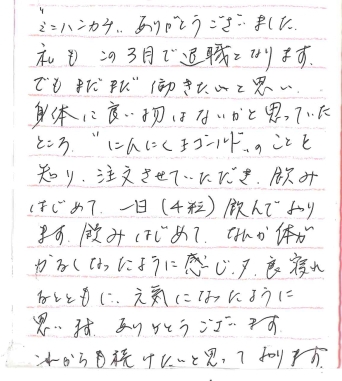 "ミニハンカチ"ありがとうございました。
私もこの3月で退職となります。
でもまだまだ働きたいと思い、
身体に良い物はないかと思っていた
ところ、"にんにく玉ゴールド"のことを
知り、注文させていただき、飲み
はじめて、一日(4粒)飲んでおり
ます。飲みはじめて、なんか体が
かるくなったように感じ、夕、良寝れ
るとともに、元気になったように
思います。ありがとうございます。
これからも続けたいと思っております。